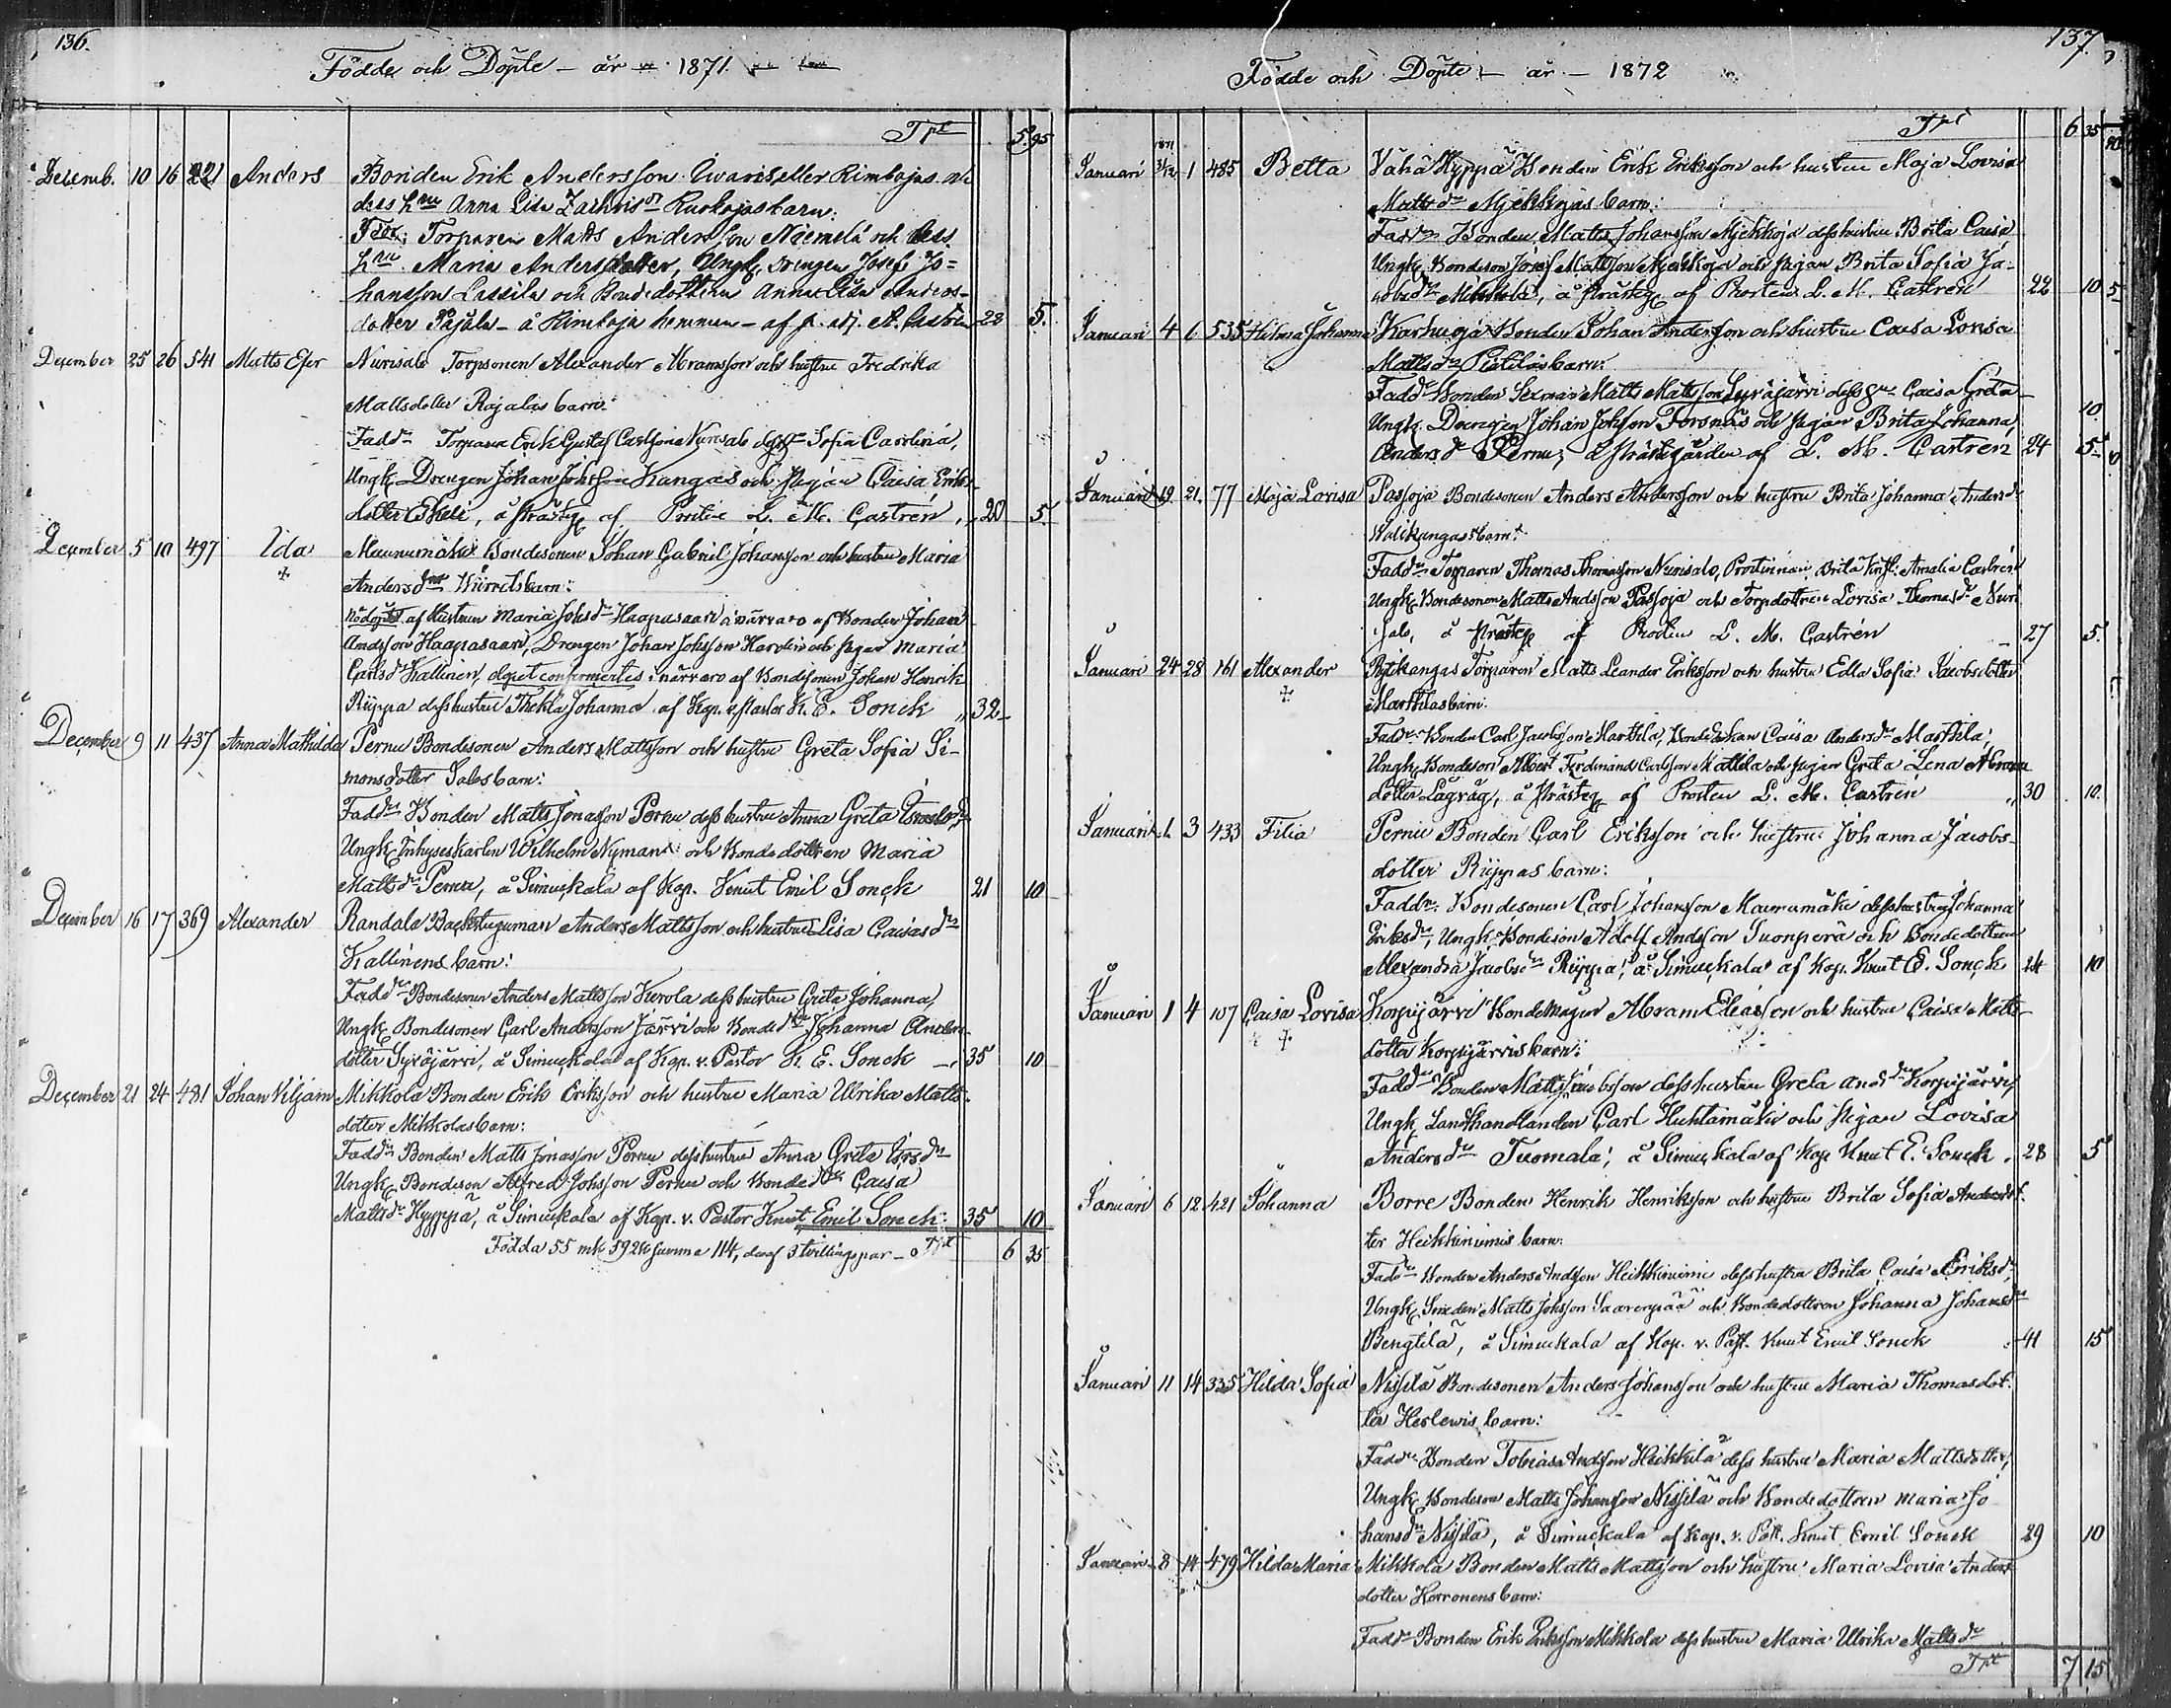 136.
Födde och Döpte - år - 1871
Tpt 5.95
Decemb. 10 16 221 Anders Bonden Erik Andersson eller Rimbojas
dess hru Anna Lisa barn:
Fadd: Torparen Matts Andersson Niemelä och dess
hru Maria Andersdotter, Ungk. drengen Josef Jo-
hansson Lassila och Bondedottren Anna Lisa Anders-
dotter Pajala - å hemman - af 28 5.
December 25 26 541 Matts Efer Nurisalo Torpsonen Alexander Abramsson och hustru Fredrika
Mattsdotter Rajalas barn.
Faddr Torparen Erik Gustaf Carlsson Nurisalo Sofia Carolina,
Ungk. Drengen Johan Johsson Kangas och Pigan Caisa Eriks-
dotter, å Prästg af Prosten L. M. Castrén, 20 5.
December 5 10 497 Ida Maunumäki Bondesonen Johan Gabriel Johansson och hustru Maria
+ Andersdr barn:
Nödöpt af Hustrun Maria Johsdr Haapasaari i närvaro af Bonden Johan
Andsson Haapasaari, Drengen Johan Johsson och Pigan Maria
Carlsdr Kallinen, dopet confirmertes i närvaro af Bondesonen Johan Henrik
Rüppa dess hustru Thekla Johanna af Kap. v. Pastor K. E. Sonck „ 32 -
December 9 11 437 Anna Mathilda Pernu Bondesonen Anders Mattsson och hustru Greta Sofia Si-
monsdotter Salos barn:
Faddr Bonden Matts Jonasson Pernu dess hustru Anna Greta
Ungk. Inhyseskarlen Wilhelm Nyman och Bondedottren Maria
Mattsdr Pernu, å Simuckala af Kap. Knut Emil Sonck 21 10
December 16 17 369 Alexander Randala Backstuguman Anders Mattsson och hustru Lisa Caisasdr
Kallinens barn:
Faddr Bondesonen Anders Mattsson Kerola dess hustru Greta Johanna,
Ungk. Bondesonen Carl Andersson Järvi och Johanna Anders-
dotter Syväjärvi, å Simuckala af Kap. v. Pastor K. E. Sonck 35 10
December 21 24 481 Johan Viljam Mikkola Bonden Erik Eriksson och hustru Maria Ulrika Matts-
dotter Mikkolas barn:
Faddr Bonden Matts Jonasson Pernu dess hustru Anna Greta
Ungk. Bondeson Alfred Johsson Pernu och Caisa
Mattsdr Hyppä, å Simuckala af Kap. v. Pastor Knut Emil Sonck 35 10
Födda 55 mk 59 qk summa 114, deraf 3 tvillingepar - Tpt 6 35
137
Födde och Döpte - år - 1872
Tpt 6 35
1871
Januari 31/12 1 485 Betta Vähä Hyppä Bonden Erik Eriksson och hustru Maja Lovisa
Mattsdr barn:
Faddr Bonden Matts Johansson dess hustru Brita Caisa
Ungk. Bondeson Josef Mattsson och Pigan Brita Sofia Ja-
cobsdr Mikkola, å Prästg af Prosten L. M. Castrén 22 10 5
Januari 4 6 535 Hilma Johanna Bonden Johan Andersson och hustru Caisa Lovisa
Mattsdr barn:
Faddr Bonden Matts Mattsson Syväjärvi Caisa Greta
Ungk. Drengen Johan Johsson Forsnäs och Pigan Brita Johanna 10.
Andersdr Pernu, å Prästgården af L. M. Castrén 24 5
Januari 19 21 77 Maja Lovisa Passoja Bondesonen Anders Andersson och hustru Brita Johanna Andersdr
Walikangas barn:
Faddr Torparen Thomas Thomasson Nurisalo, Prostinnan Amalia Castrén
Ungk. Bondesonen Matts Andsson Passoja och Torpdottren Lovisa Thomasdr Nuri-
salo, å Prästg af Prosten L. M. Castrén 27 5.
Januari 24 28 161 Alexander Torparen Matts Leander Eriksson och hustru Edla Sofia Jacobsdotter
+ Marttilas barn:
Faddr Bonden Carl Jacobsson Marttila, Caisa Andersdr Marttila,
Ungk. Bondeson Albert Ferdinand Carlsson Mattila och Pigan Greta Lena Abrams-
dotter, å Prästg af Prosten L. M. Castrén „ 30 10.
Januari 1 3 433 Filia Pernu Bonden Carl Eriksson och hustru Johanna Jacobs-
dotter Rüppas barn:
Faddr. Bondesonen Carl Johansson Maunumäki dess hustru Johanna
Eriksdr, Ungk. Bondeson Adolf Andsson Suonperä och Bondedottren
Alexandra Jacobsdr Rüppa, å Simuckala af Kap. Knut E. Sonck 24 10
Januari 1 4 107 Caisa Lovisa Korpijärvi Abram Eliasson och hustru Caisa Matts-
+ dotter Korpijärvis barn:
Faddr Bonden Matts Jacobsson dess hustru Greta Andsdr Korpijärvi,
Ungk. Landthandlanden Carl Huhtamäki och Pigan Lovisa
Andersdr Tuomala, å Simuckala af Kap Knut E. Sonck 28 5
Januari 6 12 421 Johanna Borre Bonden Henrik Henriksson och hustru Brita Sofia Andersdot-
ter Heikkiniemis barn:
Faddr Bonden Anders Andsson Heikkiniemi dess hustru Brita Caisa Eriksdr,
Ungk. Smeden Matts Johsson Saarenpää och Bondedottren Johanna Johansdr
Bengtilä, å Simuckala af Kap. v. Past. Knut Emil Sonck 41 15
Januari 11 14 335 Hilda Sofia Nissilä Bondesonen Anders Johansson och hustru Maria Thomasdot-
ter Herlewis barn:
Faddr Bonden Tobias Andsson Heikkilä dess hustru Maria Mattsdotter,
Ungk. Bondeson Matts Johansson Nissilä och Bondedottren Maria Jo-
hansdr Nissilä, å Simuckala af Kap. v. Past. Knut Emil Sonck 29 10
Januari 8 14 479 Hilda Maria Mikkola Bonden Matts Mattsson och hustru Maria Lovisa Anders-
dotter Korronens barn:
Faddr Bonden Erik Eriksson Mikkola dess hustru Maria Ulrika Mattsdr
Tpt 7 15